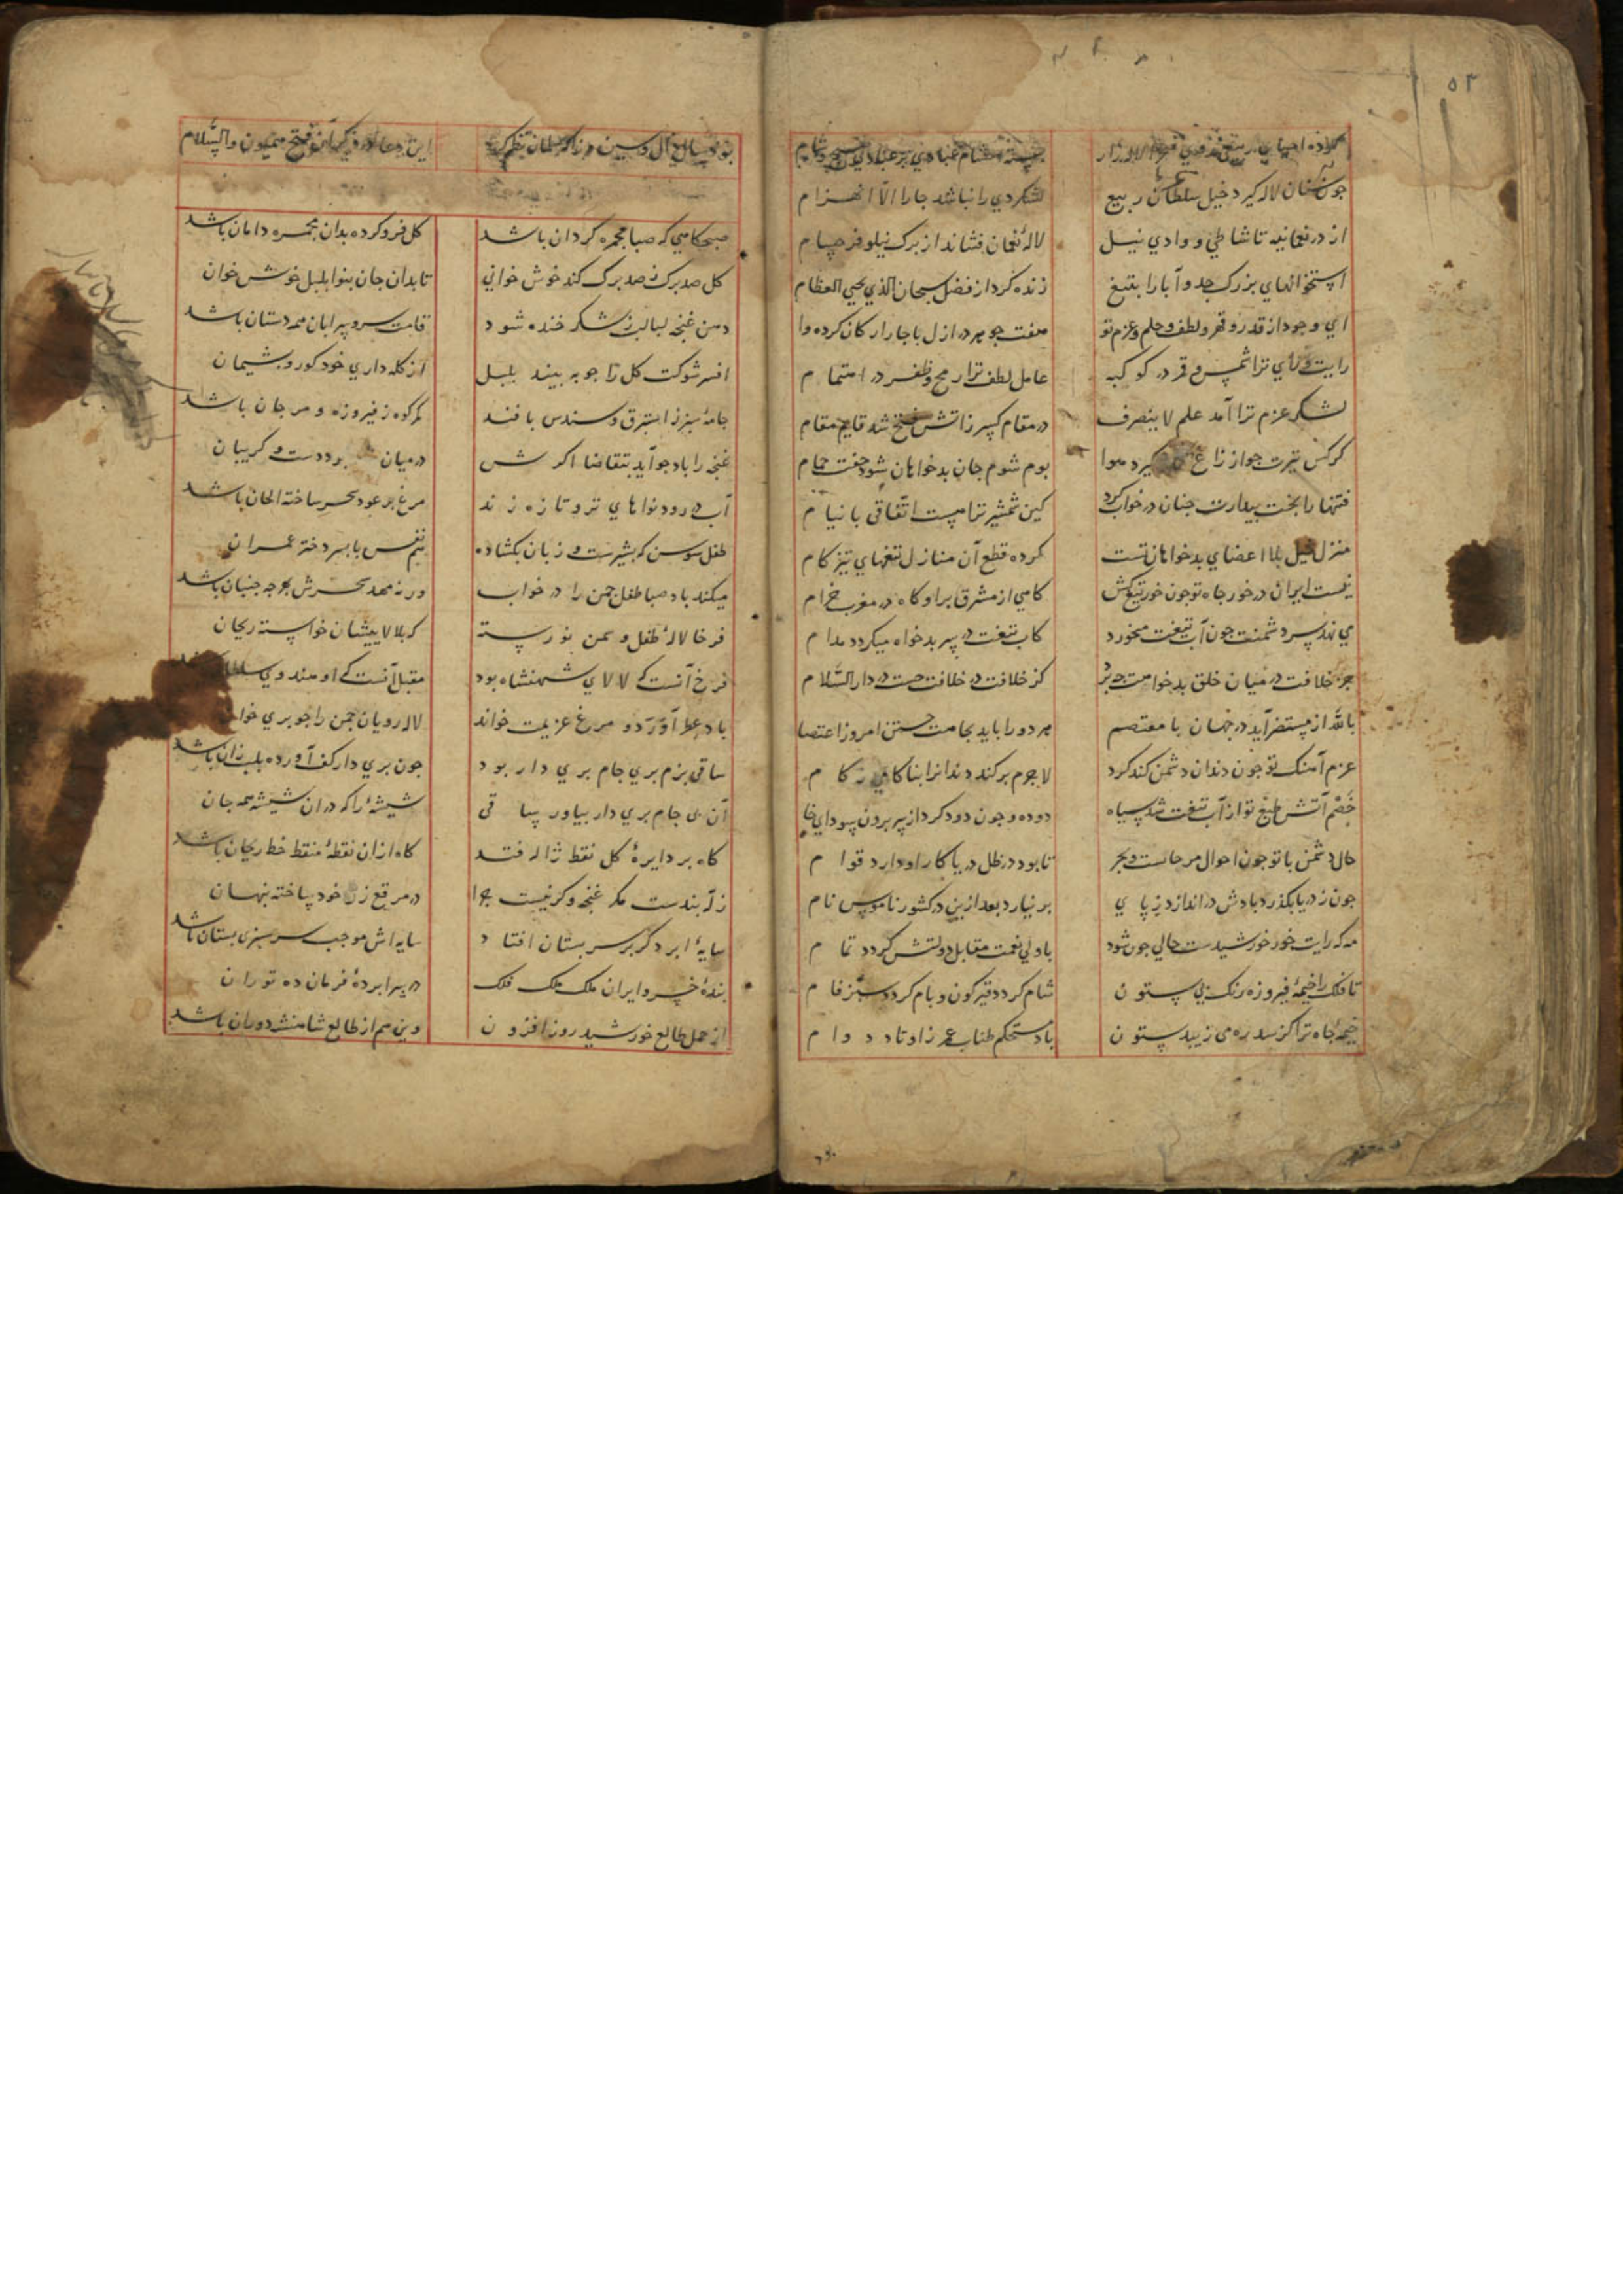 ۵۳
جون سنان لاله کیرد خیل سلطان ربیع
لشکر دی را نباشد جارا الّا انهزام
از در نعمانیه تا شاطی و وادی نیل
لالهٔ نعمان فشاند از برک نیلوفر حسام
استخوانهای بزرک جد و آبا را بتیغ
زنده کرد از فضل سبحان الذی یحیی العظام
ای وجود از قدر و قهر و لطف و حلم و عزم تو
هفت جوهر در ازل با جار ارکان کرده وام
رایت و رای ترا شمس و قمر در کوکبه
عامل لطف ترا رمح و ظفر در اهتمام
لشکر عزم ترا آمد علم لا ینصرف
در مقام کسر زانش فتح شد قایم مقام
کرکس تیرت جو از زاغ کیرد هوا
بوم شوم جان بدخواهان شود جفت حمام
فتنها را بخت بیدارت جنان در خواب کرد
کین شمشیر ترا هست اتفاقی با نیام
منزل خیل بلا اعضای بدخواهان تست
کرده قطع آن منازل تیغهای تیز کام
نیست ایران در خور جاه تو جون خور تیغ کش
کامی از مشرق براو کاه در مغرب خرام
می نهد سر دشمنت جون آب تیغت میخورد
کاب تیغت در سر بدخواه میکردد مدام
جز خلافت در میان خلق بدخواهت جو بر
کز خلافت در خلافت جست در دار السّلام
بالله از مستضر آید در جهان با معتصم
هر دو را باید بجاهت جستن امروز اعتصام
عزم آهنک تو جون دندان دشمن کند کرد
لاجرم برکند دندانرا بناکامی ز کام
خصم آتش طبع تو از آب تیغت شد سیاه
دوده و جون دود کرد از سر برون سودای خام
حال دشمن با تو جون احوال مرجانست و بحر
تا بود در ظل دریا کار او دارد قوام
جون ز دریا بکذرد بادش در اندازد ز پای
بر نیارد بعد ازین در کشور ناموس نام
مه که رایت خور خورشیدست حالی جون شود
با ولی نعمت مقابل دولتش کردد تمام
تا فلک را خیمهٔ فیروزه رنک بی ستون
شام کردد قیرکون و بام کردد سبز فام
خیمهٔ جاه ترا کز سدره می زیبد ستون
باد مستحکم طناب عمر ز اوتاد دوام
این دعا در ذکر آن فتح میمون والسّلام
صبحکاهی که صبا مجمره کردان باشد
کل فرو کرده بدان مجمره دامان باشد
کل صد برک ز صد برک کند خوش خوانی
تا بدان جان بنوا بلبل خوش خوان
دهن غنجه لبالب ز شکر خنده شود
قامت سرو سراپا همه دستان باشد
افسر شوکت کل را جو به بیند بلبل
از کله داری خود کور و پشیمان
جامهٔ سبز ز استبرق و سندس بافند
کمر کوه ز فیروزه و مرجان باشد
غنجه را باد جو آید بتقاضا اکرش
در میان بود دست و کریبان
آب در رود نواهای تر و تازه زند
مرغ بر عود سحر ساخته الحان باشد
طفل سوسن که بشیرست و زبان بکشاده
هم نفس با پسر دختر عمران
میکند باد صبا طفل جمن را در خواب
ورنه مهد سحرش بهر جه جنبان باشد
فرخا لالهٔ طفل و سمن نورسته
که بلالاییشان خواسته ریحان
فرخ آنست که لالای شهنشاه بود
مقبل آنست که او هندوی سلطان
باد عطر آورد و مرغ عزیمت خواند
لاله رویان جمن را جو پری خوا
ساقی بزم پری جام پری دار بود
جون پری دار کف آورده بلب زان باشد
آن می جام پری دار بیاور ساقی
شیشهٔ را که در ان شیشه همه جان
کاه بر دایرهٔ کل نقط ژاله فتد
کاه از ان نقطهٔ منقط خط ریحان باشد
زر به بندست مکر غنجه و کر نیست جرا
در مرقع زر خود ساخته پنهان
سایهٔ ابرد کر بر سر بستان افتاد
سایه اش موجب سرسبزی بستان باشد
بندهٔ خسرو ایران ملک ملک فلک
در سرا بردهٔ فرمان ده توران
از حمل طالع خورشید روز افزون
وین هم از طالع شاهنشه دوران باشد